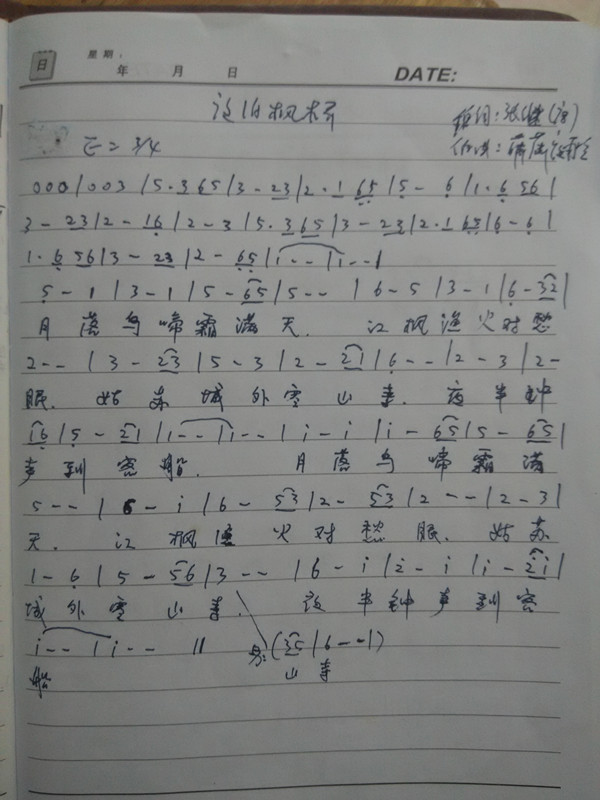 日 星期:
年 月 日 DATE:
泊枫桥
词: 张继(唐)
E = 3/4
000|003|5·365|3-23|2·165|5-6|1·656|
3-23|2-16|2-3|5·365|3-23|2·165|6-6|
1·656|3-23|2-65|i--|i--|
5-1|3-1|5-65|5--|6-5|3-1|6-32|
月落乌啼霜满天. 江枫渔火对愁
2--|3-23|5-3|2-21|6--|2-3|2-
眠. 姑苏城外寒山寺. 夜半钟
16|5-21|1--|1--|i-i|i-65|5-65|
声到客船. 月落乌啼霜满
5--|6-i|6-53|2-53|2--|2-3|
天. 江枫渔火对愁眠. 姑苏
1-6|5-56|3--|6-i|2-i|i-2i|
城外寒山寺. 夜半钟声到客
i--|i--|| (35|6--|)
船 山寺